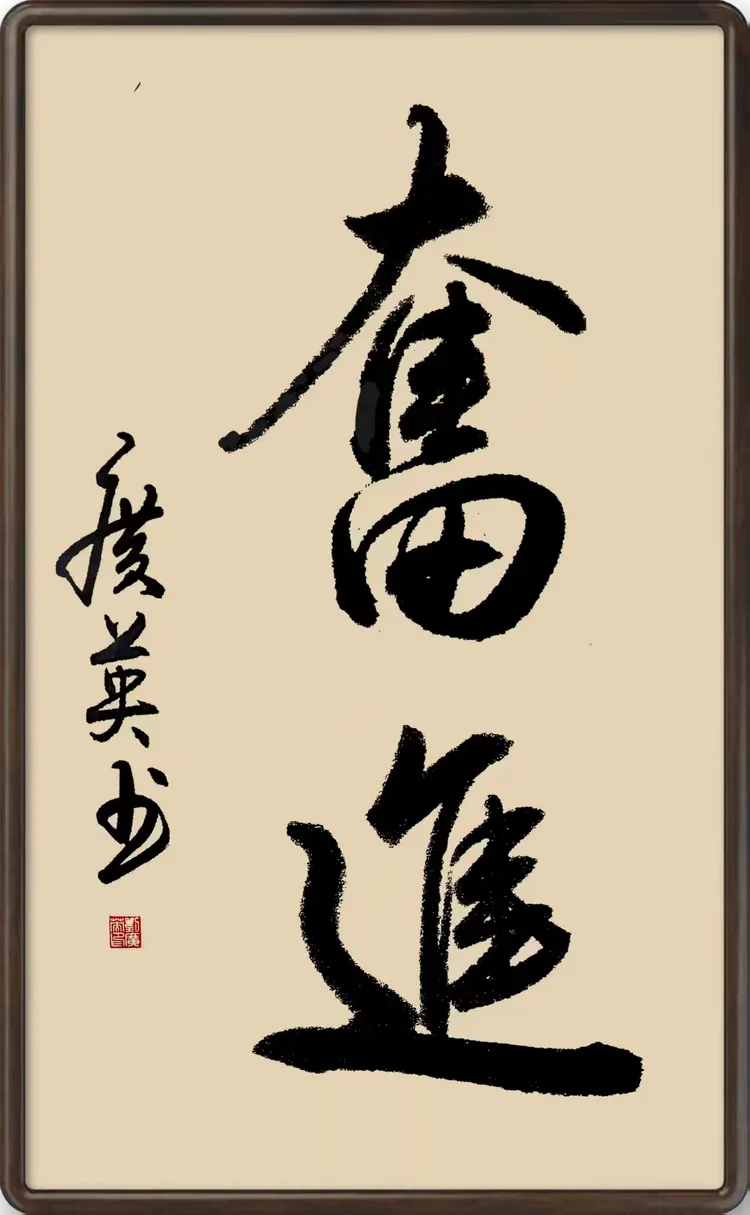 奮進
廣英书